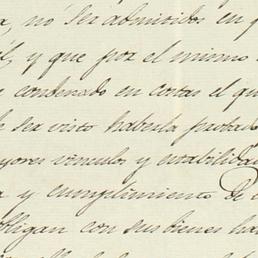 no ser admitidos en
y que por el mismo
condenado en costas el qu
ser visto haberla probado
yores vinculos y estabilidad
a y cumplimiento de
obligan con sus bienes ha